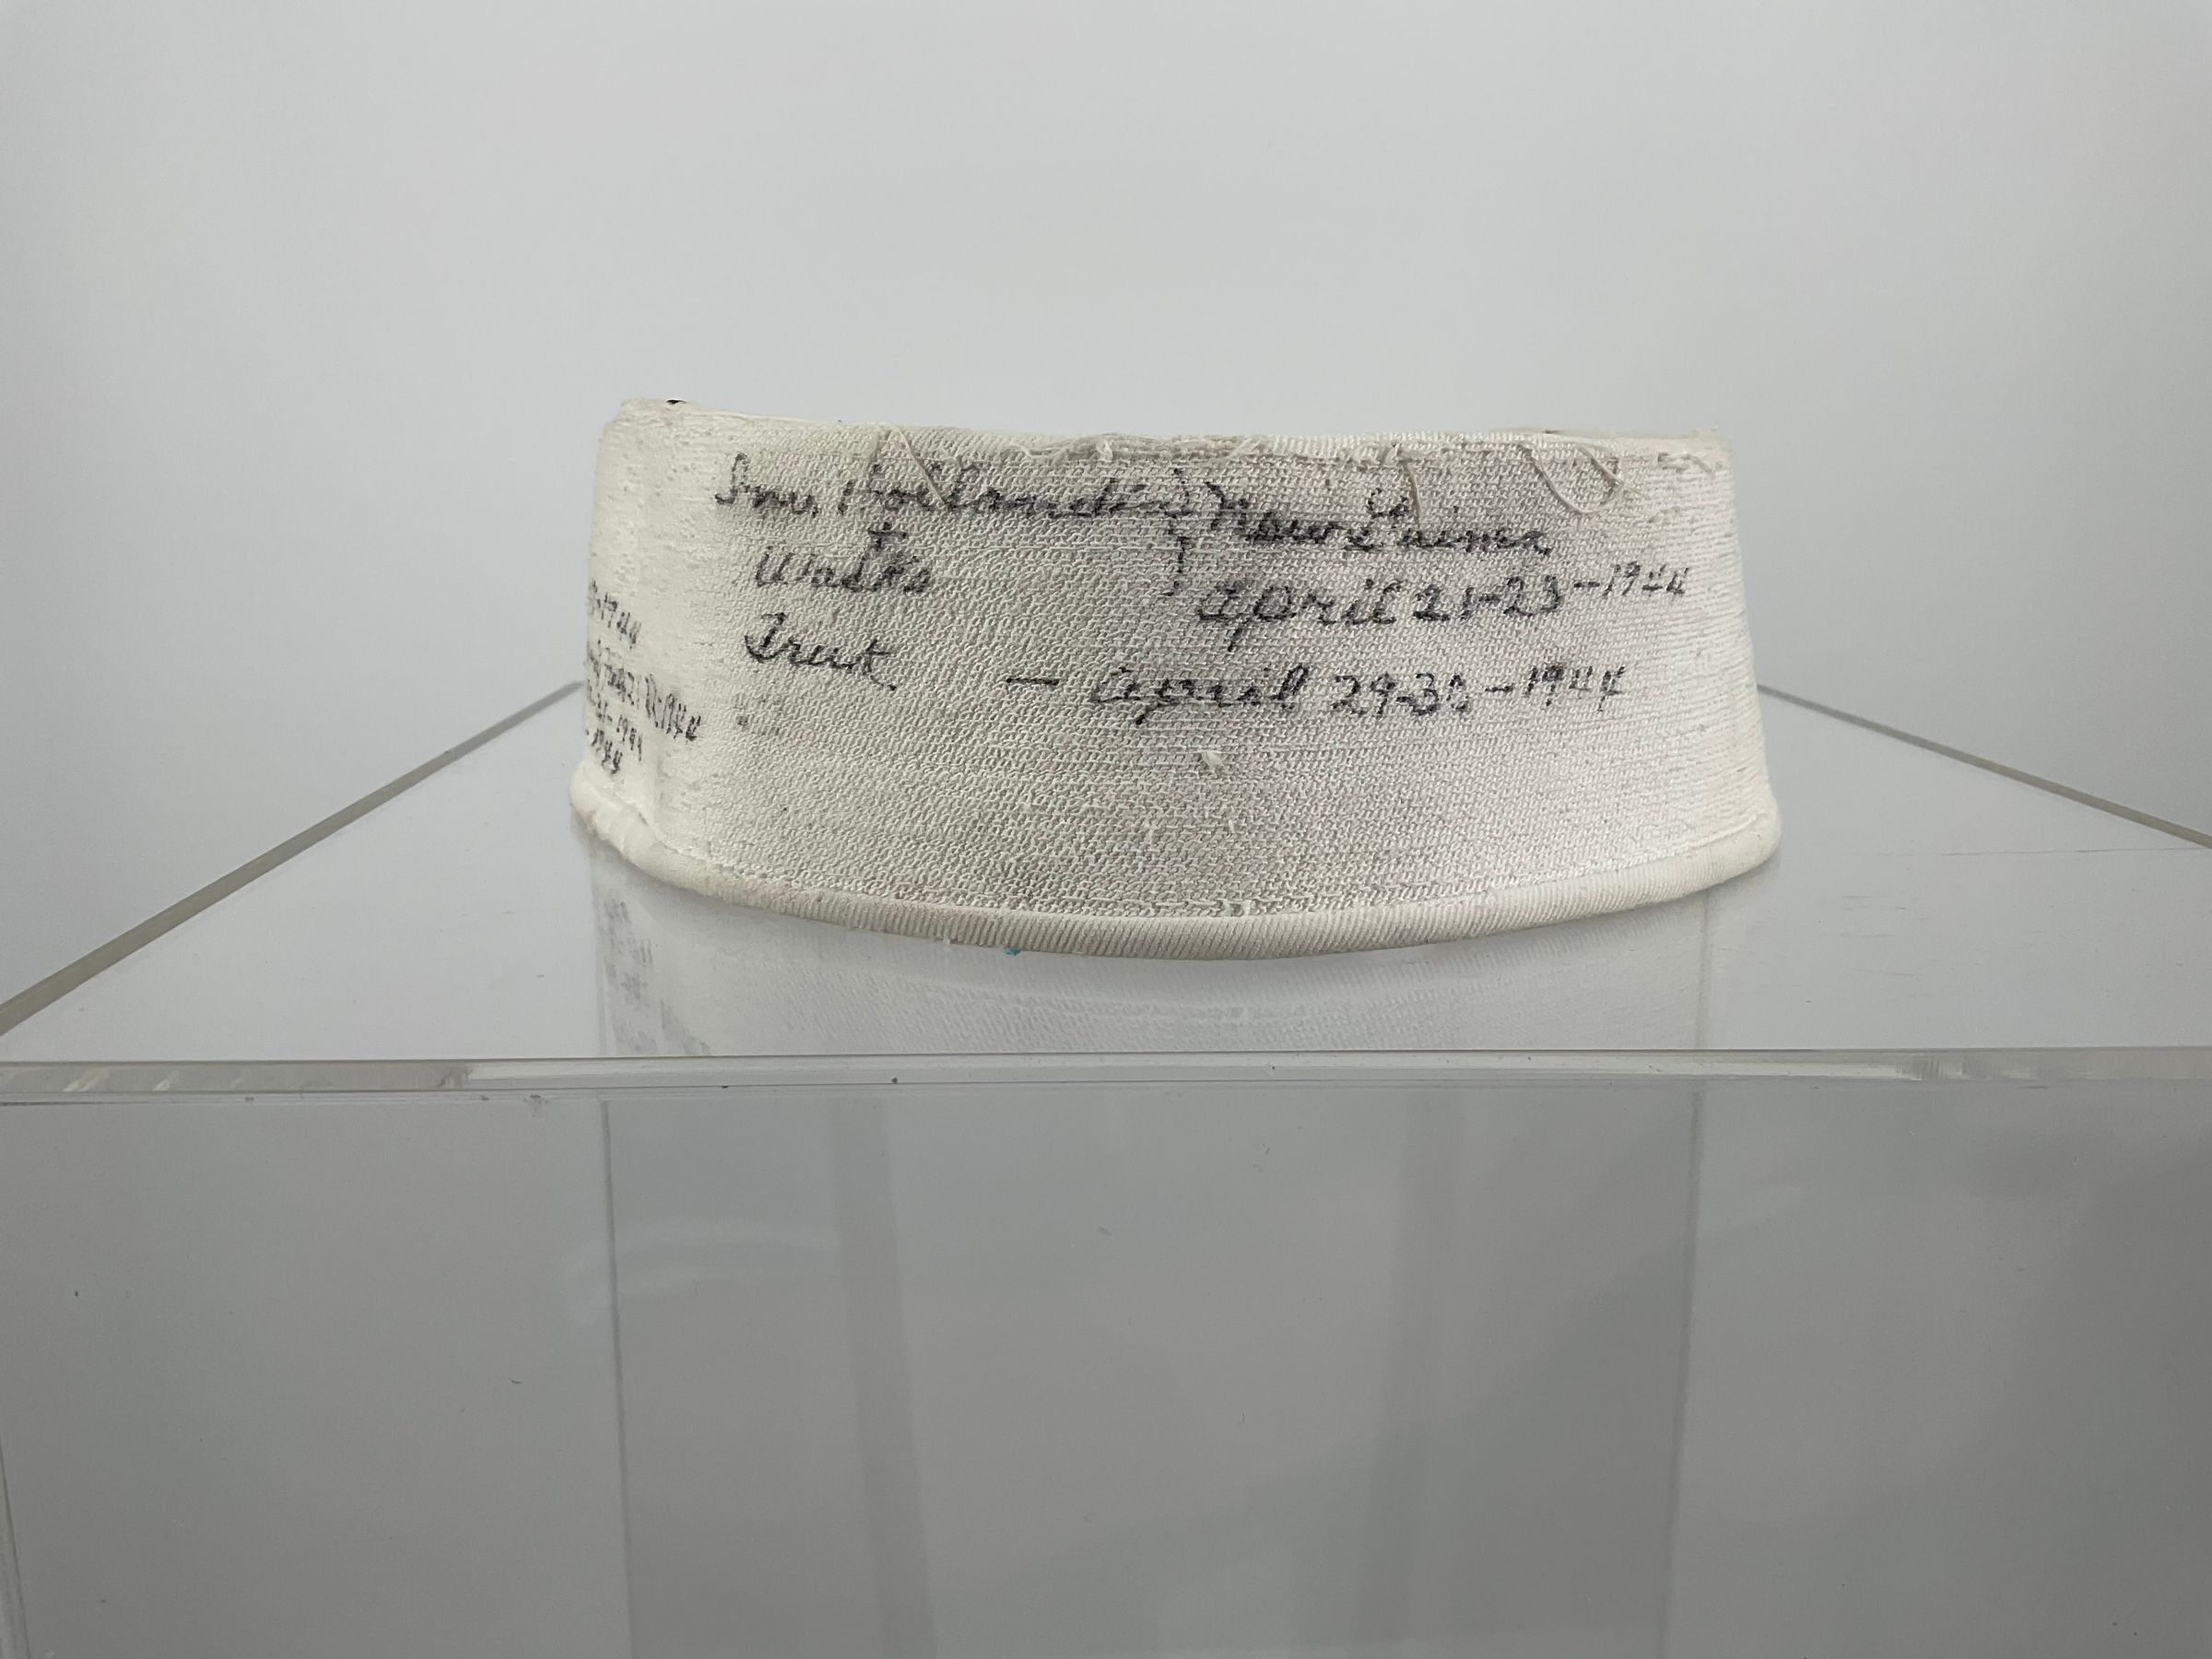 Inv. Hollandia } New Guinea
+
Wadke
April 21-23-1944
Truk. - April 29-30-1944
-1944
1944
-1944
-1944